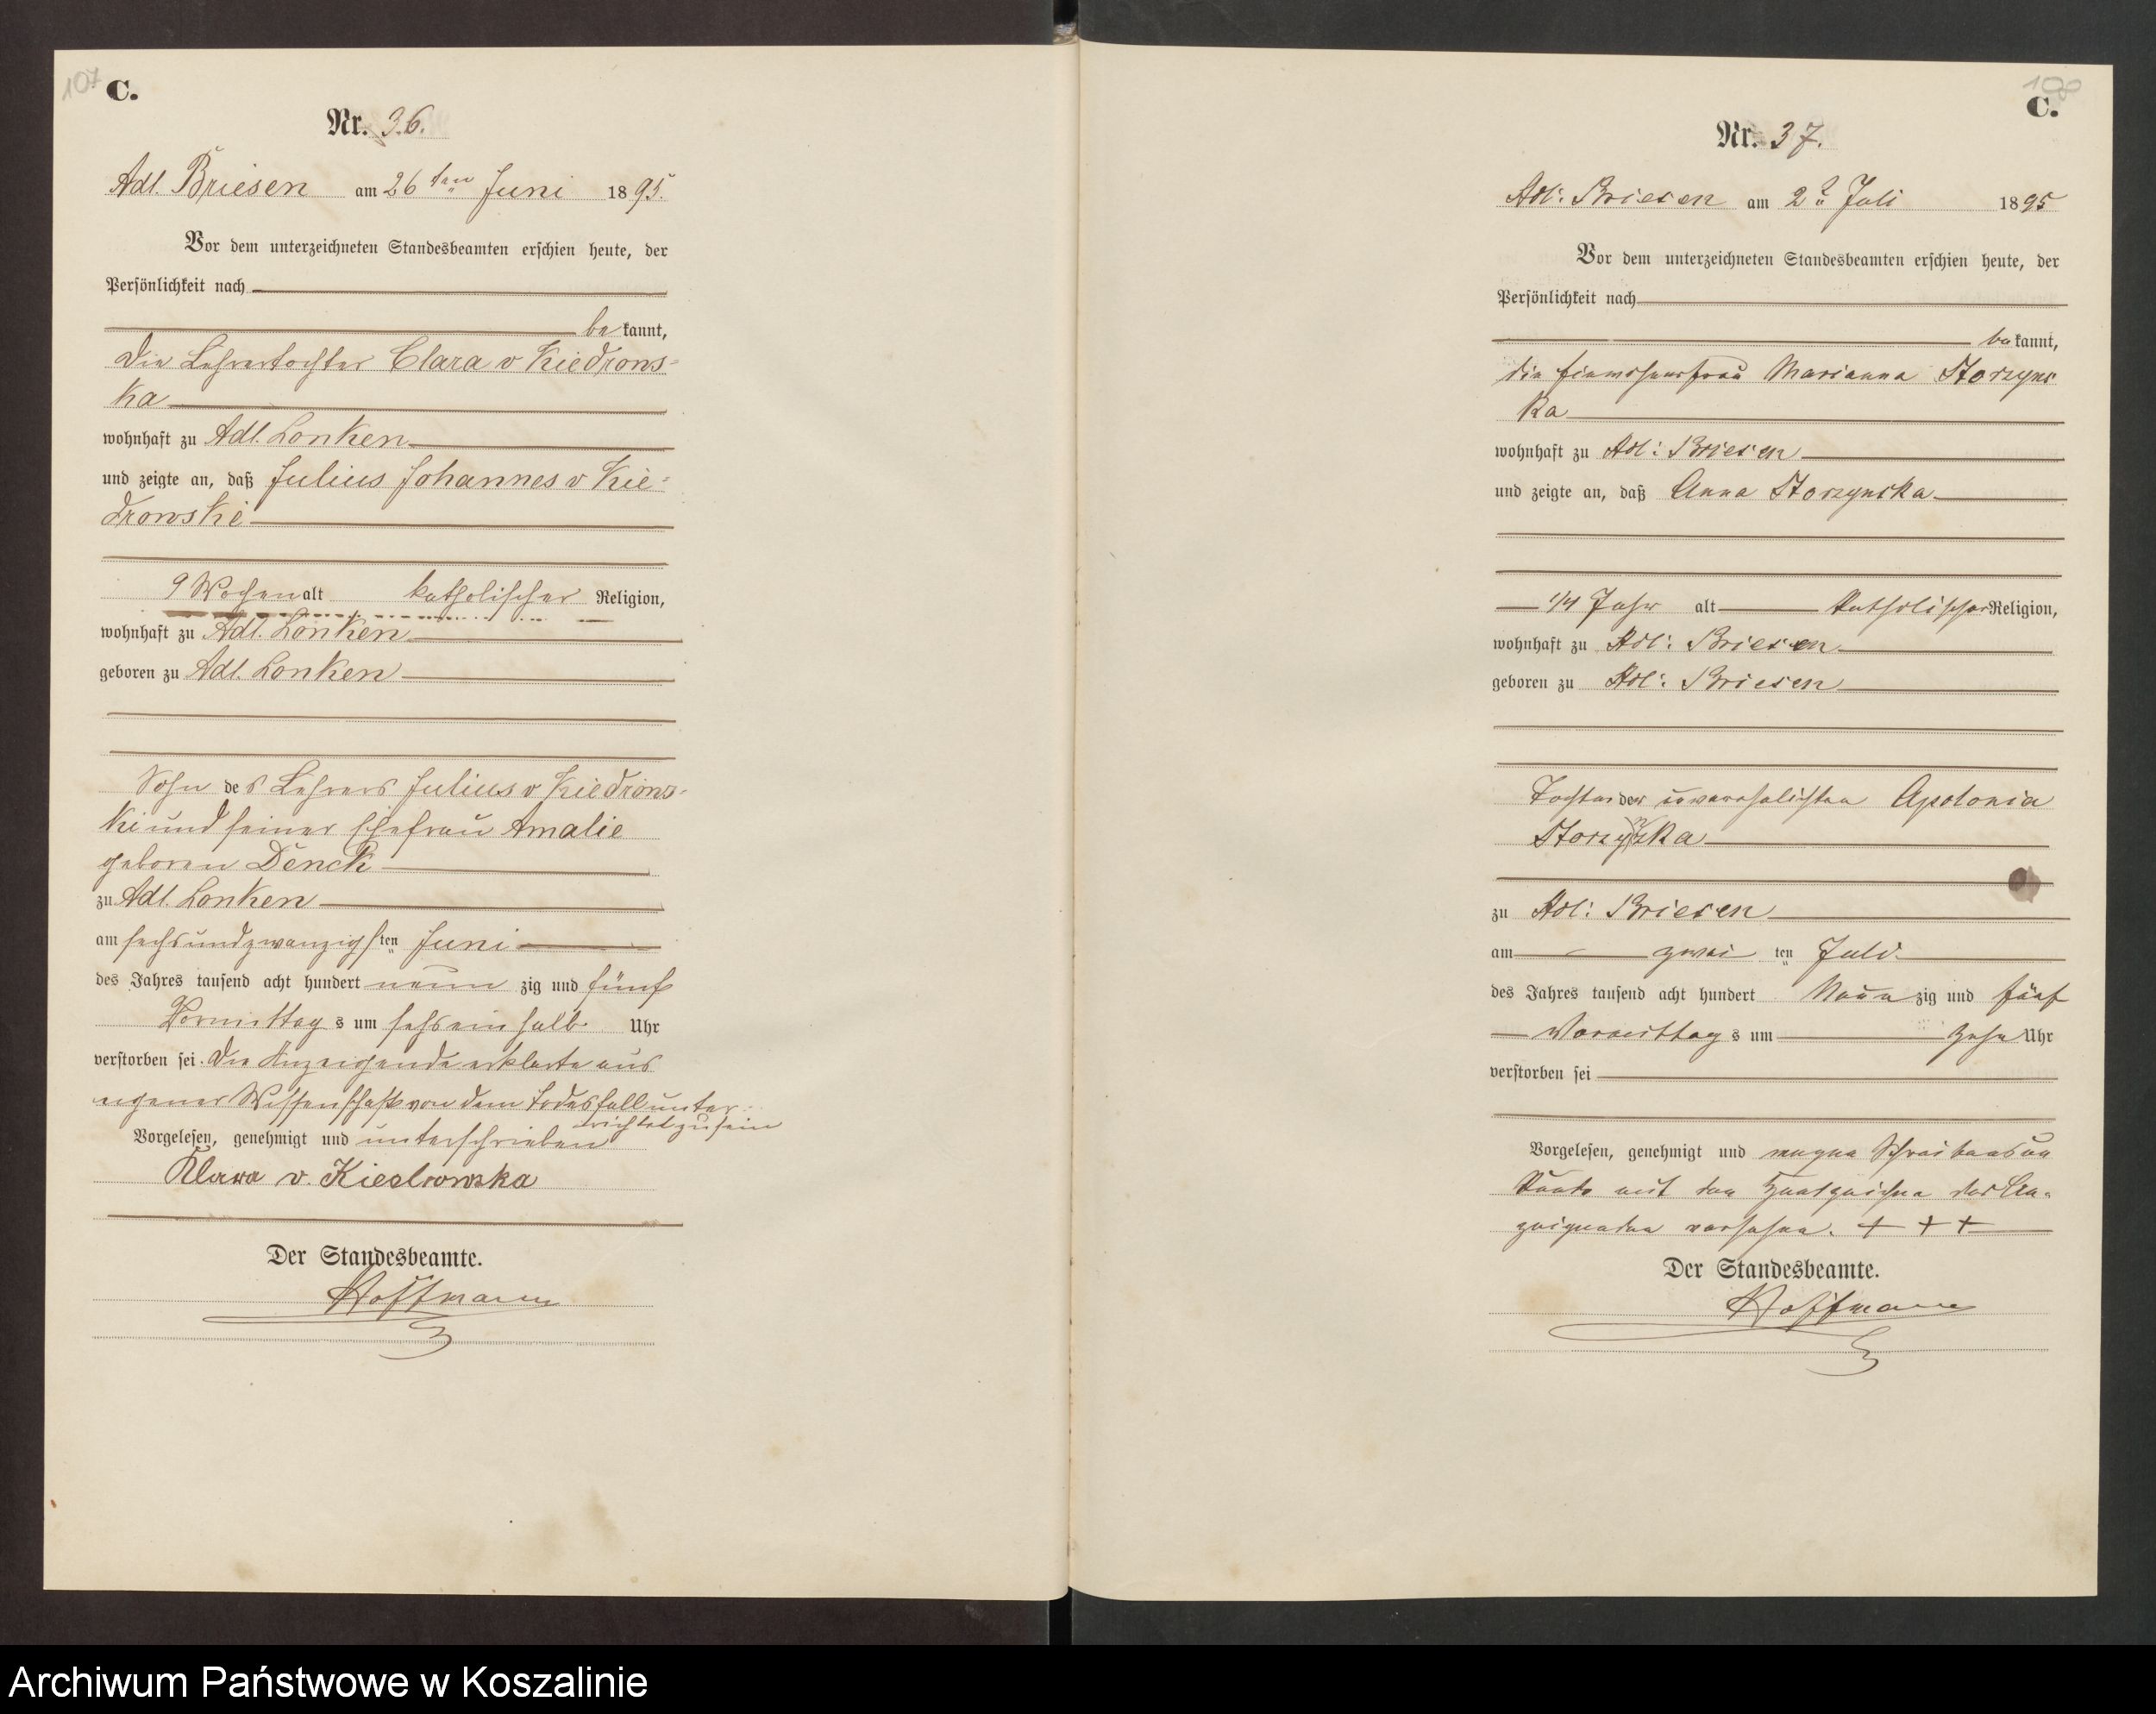 107 C.
Nr. 36.
Adl. Briesen am 26 ten Juni 1895.
Vor dem unterzeichneten Standesbeamten erschien heute, der
Persönlichkeit nach
bekannt,
die Lehrertochter Clara v Kiedrows=
ka
wohnhaft zu Adl. Lonken
und zeigte an, daß Julius Johannes v Kie=
drowski
9 Wochen alt katholischer Religion,
wohnhaft zu Adl. Lonken
geboren zu Adl. Lonken
Sohn des Lehrers Julius v Kiedrows-
ki und seiner Ehefrau Amalie
geboren Denck
zu Adl. Lonken
am sechsundzwanzigsten Juni
des Jahres tausend acht hundert neun zig und fünf
Vormittags um sechs ein halb Uhr
verstorben sei. Die Anzeigende erklärte aus
eigener Wissenschaft von dem Todesfall unter-
richtet zu sein
Vorgelesen, genehmigt und unterschrieben
Klara v. Kiedrowska
Der Standesbeamte.
Hoffmann
C.
Nr. 37.
Adl: Briesen am 2 Juli 1895
Vor dem unterzeichneten Standesbeamten erschien heute, der
Persönlichkeit nach
bekannt,
die Einwohnerfrau Marianna Storzyns
ka
wohnhaft zu Adl: Briesen
und zeigte an, daß Anna Storzynska
1/4 Jahr alt katholischer Religion,
wohnhaft zu Adl: Briesen
geboren zu Adl: Briesen
Tochter der unverehelichten Apolonia
Storzynska
zu Adl: Briesen
am zwei ten Juli
des Jahres tausend acht hundert Neun zig und fünf
Vormittags um zehn Uhr
verstorben sei
Vorgelesen, genehmigt und wegen Schreibens un
kunde mit den Handzeichen der An-
zeigenden versehen. + + +
Der Standesbeamte.
Hoffmann
Archiwum Państwowe w Koszalinie